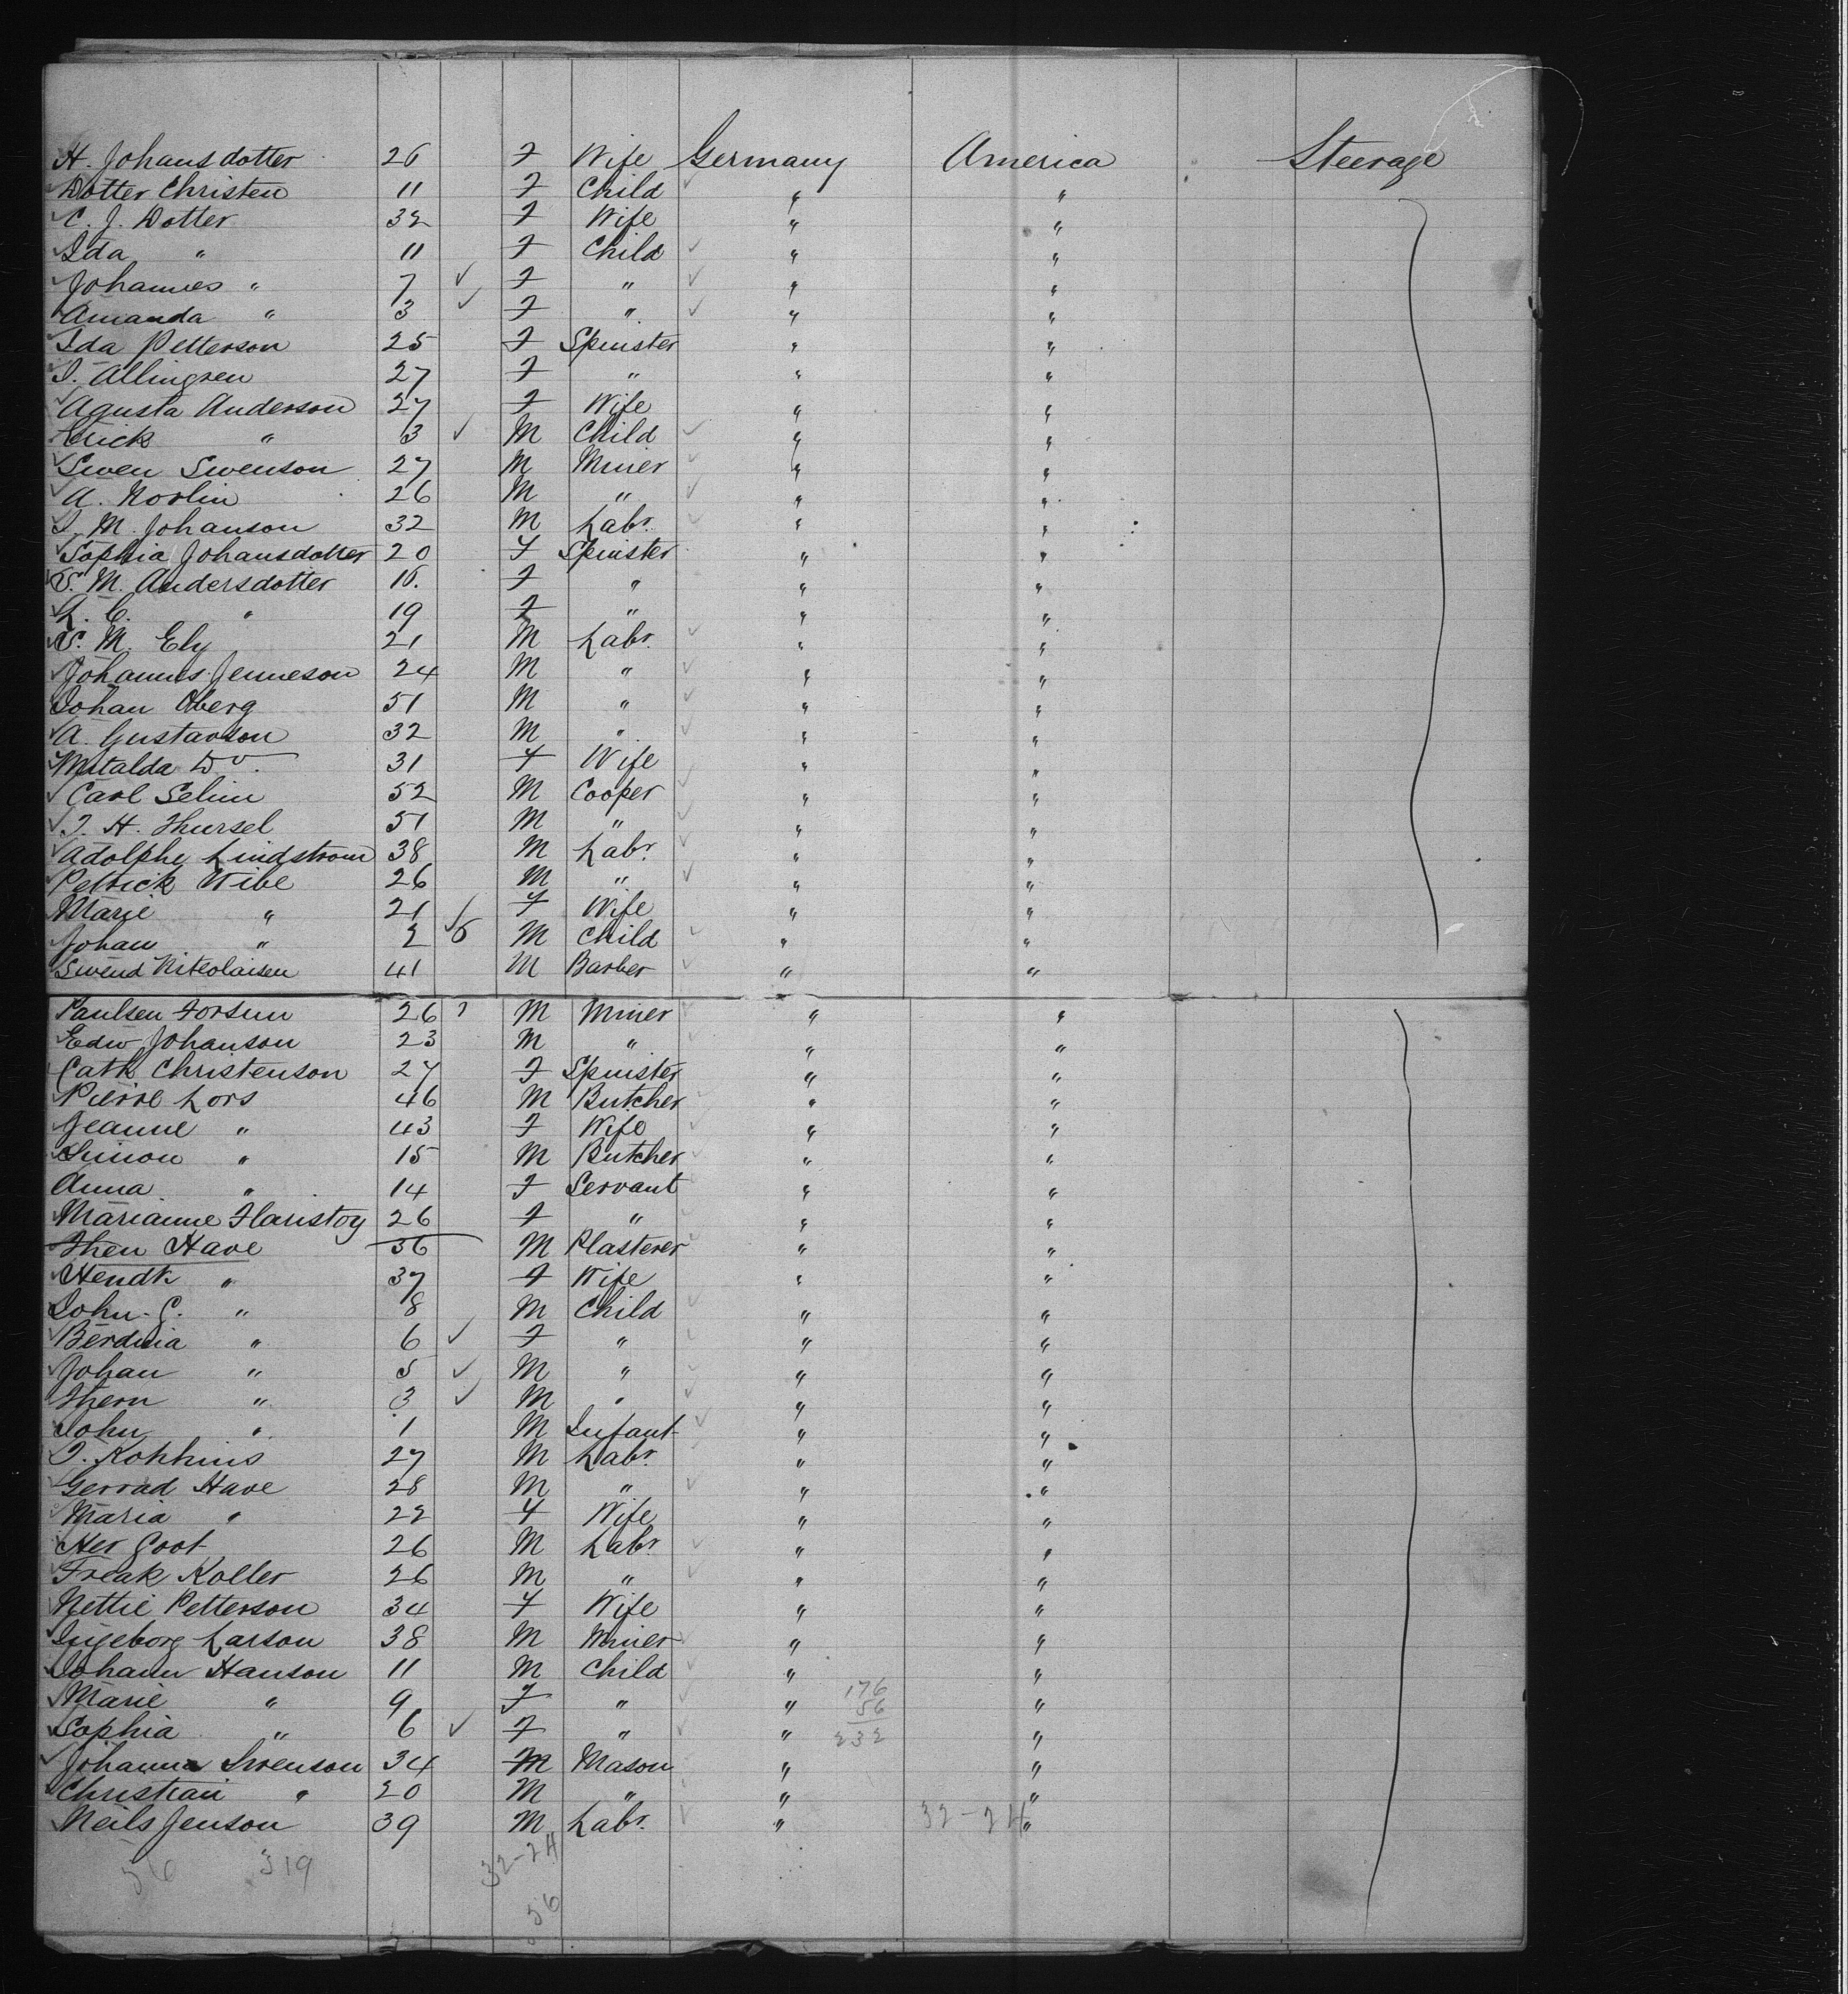 H. Johansdotter 26 F Wife Germany America Steerage
Dotter Christen 11 F Child " "
C. J. Dotter 32 F Wife " "
Ida " 11 F Child " "
Johannes " 7 F " " "
Amanda " 3 F " " "
Ida Petterson 25 F Spinster " "
I. Allingren 27 F " " "
Agusta Anderson 27 F Wife " "
Erick " 3 M Child " "
Swen Swenson 27 M Miner " "
A. Norlin 26 M " " "
I. M. Johanson 32 M Labr. " "
Sophia Johansdotter 20 F Spinster " "
S. M. Andersdotter 16. F " " "
L. C. " 19 F " " "
S. M. Ely 21 M Labr. " "
Johannes Jenneson 24 M " " "
Johan Oberg 51 M " " "
A. Gustavson 32 M " " "
Matalda Do. 31 F Wife " "
Carl Selim 52 M Cooper " "
T. H. Thursel 51 M " " "
Adolphe Lindstrom 38 M Labr. " "
Petrick Wibe 26 M " " "
Marie " 21 F Wife " "
Johan " M Child " "
Swend Nikolaisen 41 M Barber " "
Paulsen Forsun 26 M Miner " "
Edw Johanson 23 M " " "
Cath Christenson 27 F Spinster " "
Pierre Lors 46 M Butcher " "
Jeanne " 43 F Wife " "
Simon " 15 M Butcher " "
Anna " 14 F Servant " "
Marianne Haristoy 26 F " " "
Then Have 36 M Plasterer " "
Hendk " 37 F Wife " "
John C. " 8 M Child " "
Berdina " 6 F " " "
Johan " 5 M " " "
Thern " 3 M " " "
John " 1 M Infant " "
T. Kohkins 27 M Labr. " "
Gerrad Have 28 M " " "
Maria " 22 F Wife " "
Her Goot 26 M Labr. " "
Freak Koller 26 M " " "
Nettie Petterson 34 F Wife " "
Ingeborg Larson 38 M Miner " "
Johann Hanson 11 M Child " "
Marie " 9 F " " 176 "
56
Sophia " 6 F " " 232 "
Johanna Swenson 34 M Mason " "
Christian " 20 M " " "
Neils Jenson 39 M Labr. " 32-24 "
56 319 32-24
56